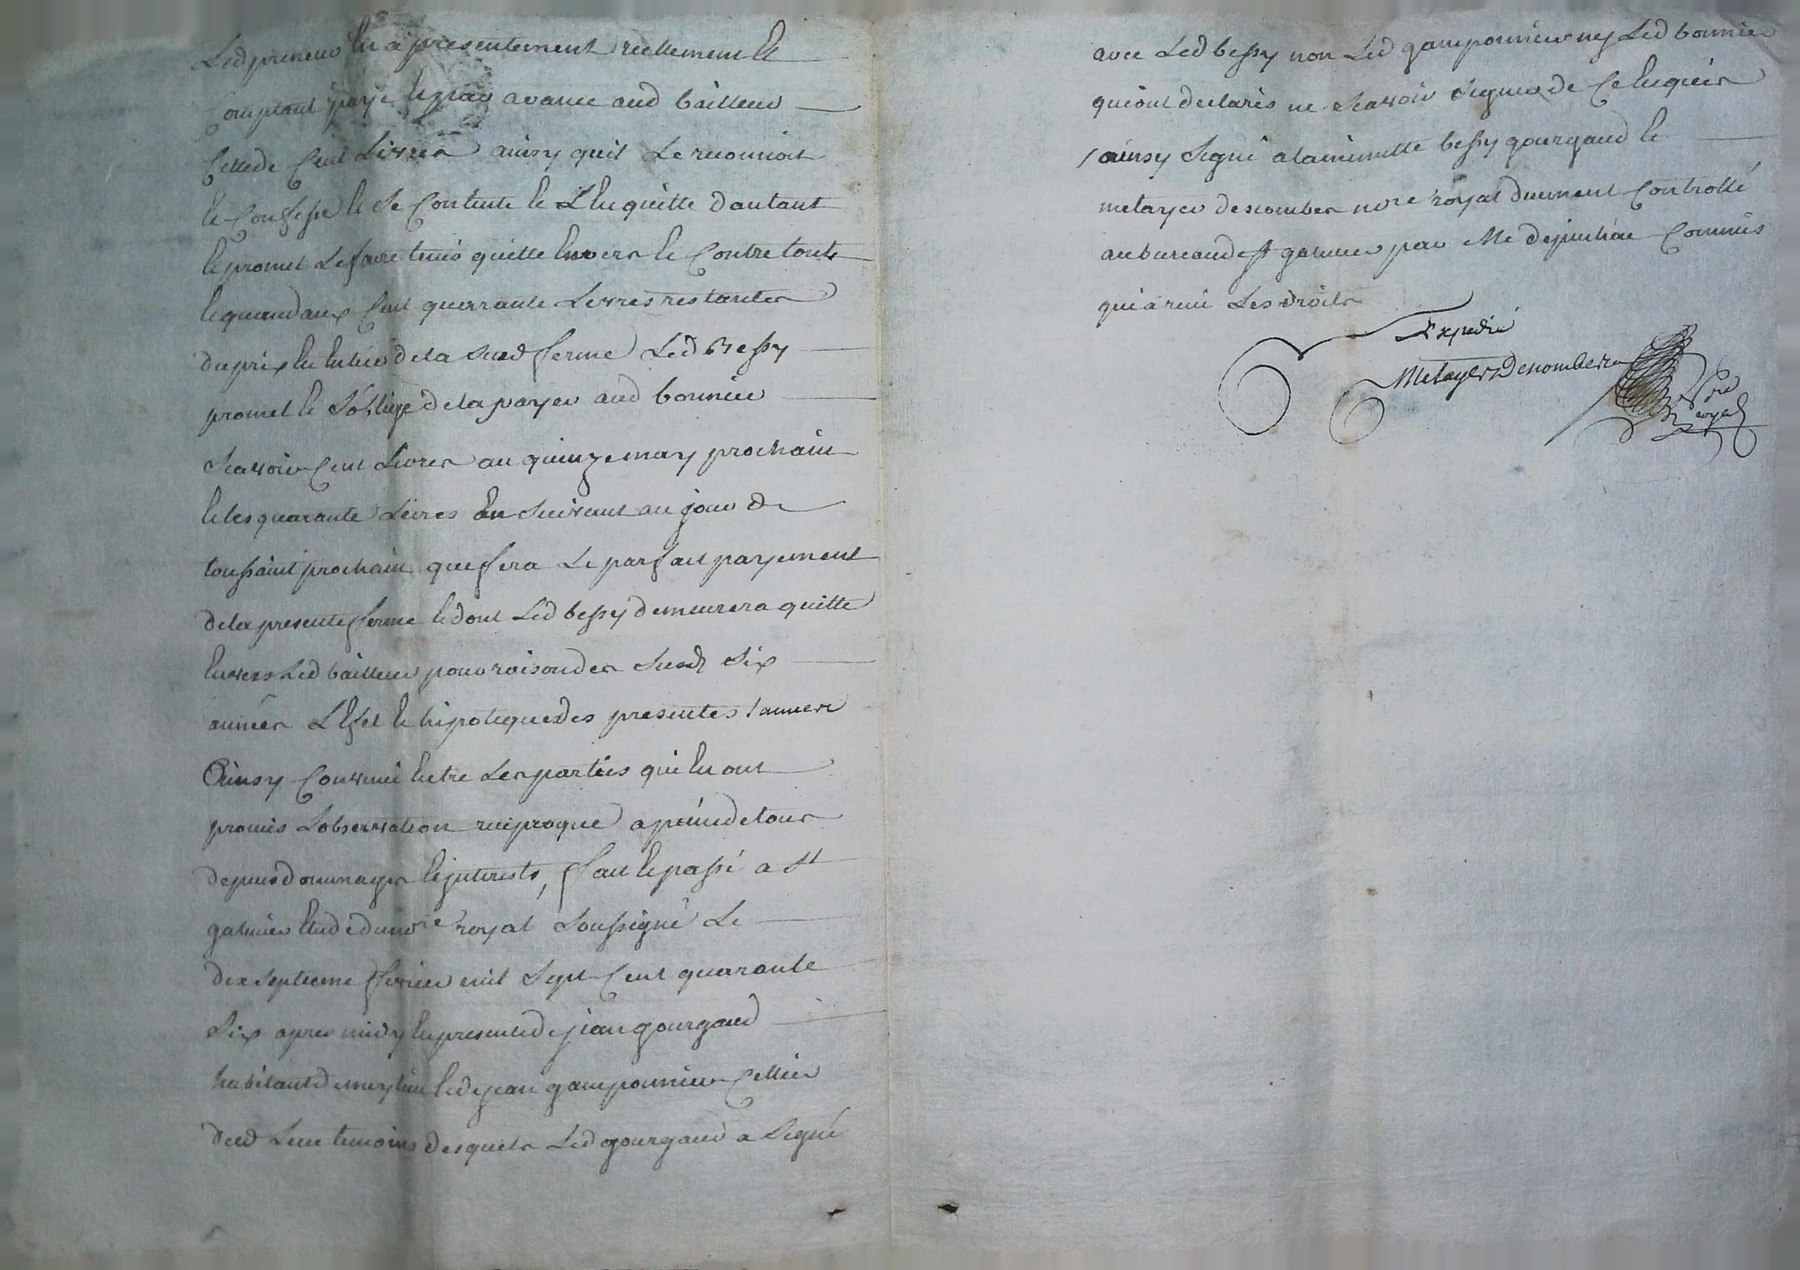 Led preneur en a presentement reellement et
comptant payé et par avance aud bailleur
celle de cent Livres ainsy quil Le reconnoit
et confesse et se contente et L'en quitte d'autant
et promet Le faire tenir quitte envers et contre touts
et quand aux cent quarante Livres restantes
du prix en entier de la susd ferme Led Bessy
promet et s'oblige de la payer aud bonnier
scavoir cent Livres au quinze may prochain
et les quarante Livres en suivant au jour de
toussaint prochain que sera Le parfait payement
de la presente ferme et dont Led bessy demeurera quitte
envers Led bailleur pour raison des susd six
années L'efet et hipoteques des presentes
Ainsy convenu entre Les parties qui en ont
promis L'observation reciproque a peine de tous
depens dommages et interests, fait et passé a St
galmier etude du nore royal soussigné Le
dix septieme fevrier mil sept cent quarante
six apres midy en presence de jean gourgaud
habitant de et de jean gamponnier cellier
dud Lieu temoins desquels Led gourgaud a signé
avec Led bessy non Led gamponnier ny Led bonnier
qui ont declarés ne scavoir signer de ce enquis
ainsy signé a la minutte bessy gourgaud et
metayer descombes nore royal duement controllé
au bureau de St galmier par Me commis
qui a receu Les droits
Expedié
Metayer Descombes
nore
royal